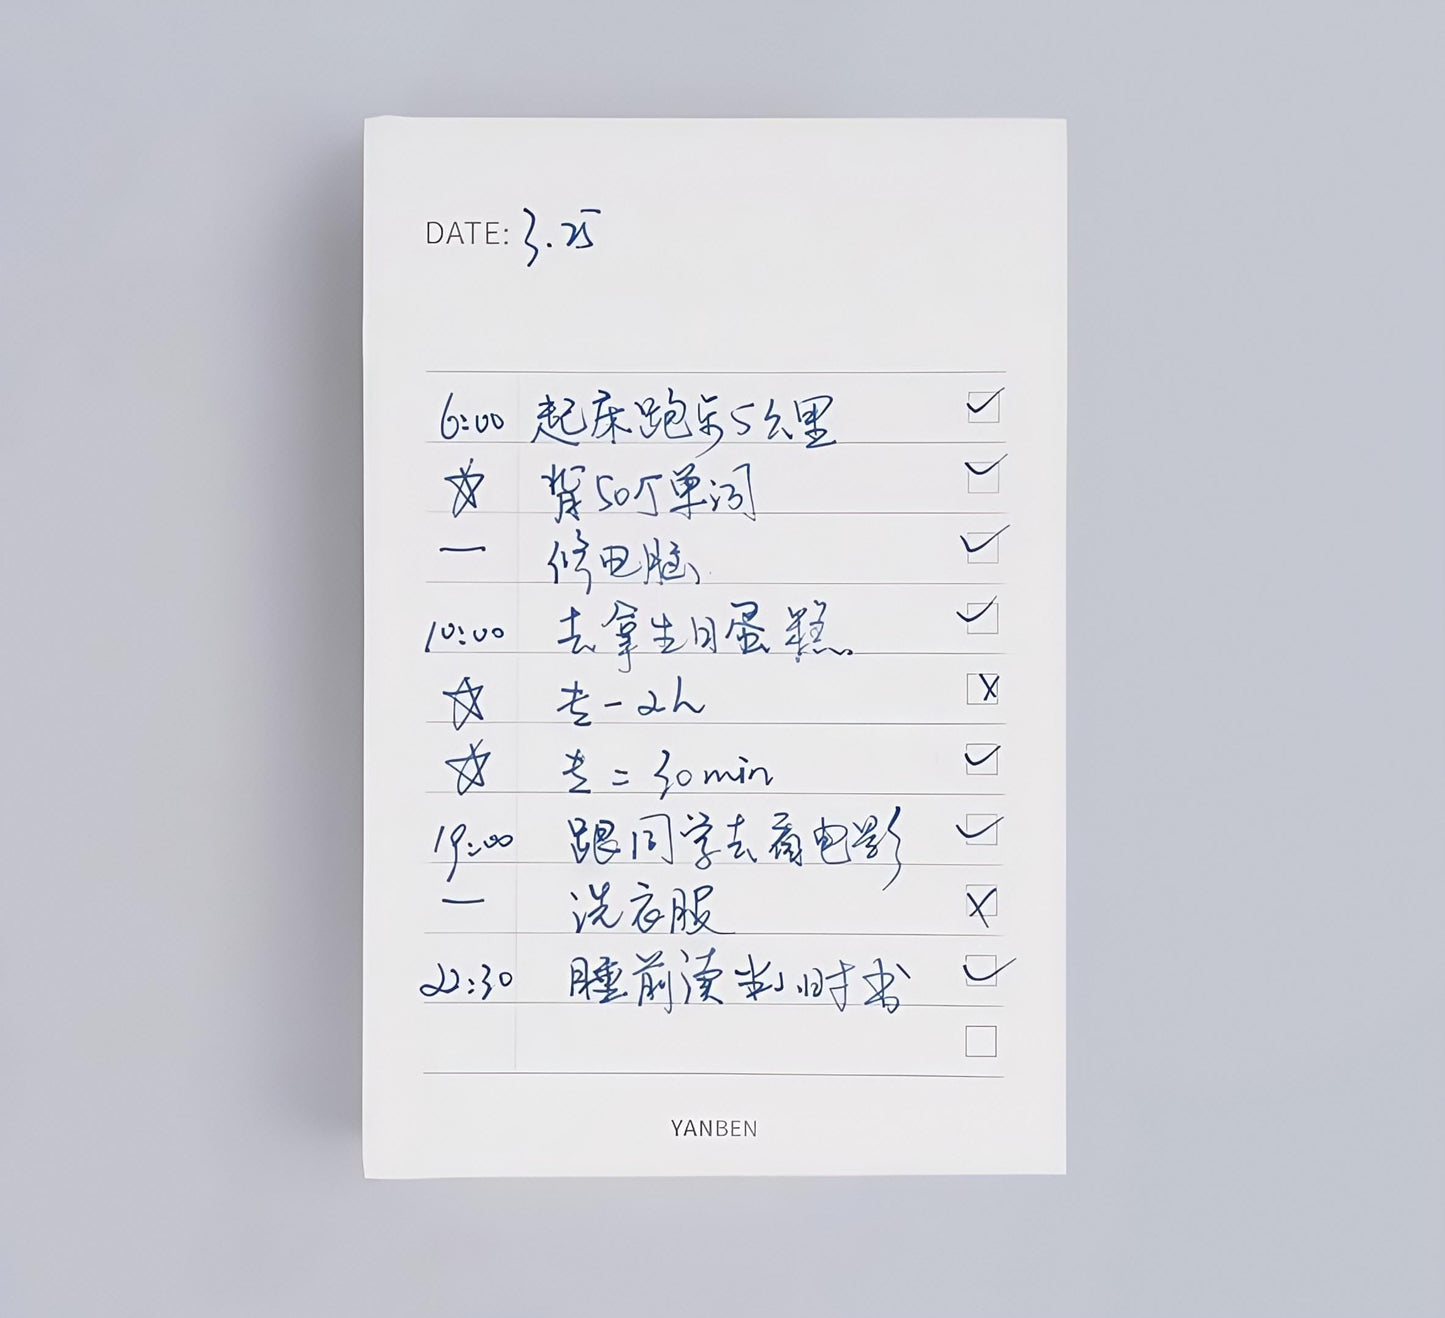 DATE: 3.25
6:00 起床跑步5公里 ✓
☆ 背50个单词 ✓
— 修电脑 ✓
10:00 去拿生日蛋糕 ✓
☆ 专一 2h ×
☆ 专二 30min ✓
19:00 跟同学去看电影 ✓
— 洗衣服 ×
22:30 睡前读半小时书 ✓
YANBEN